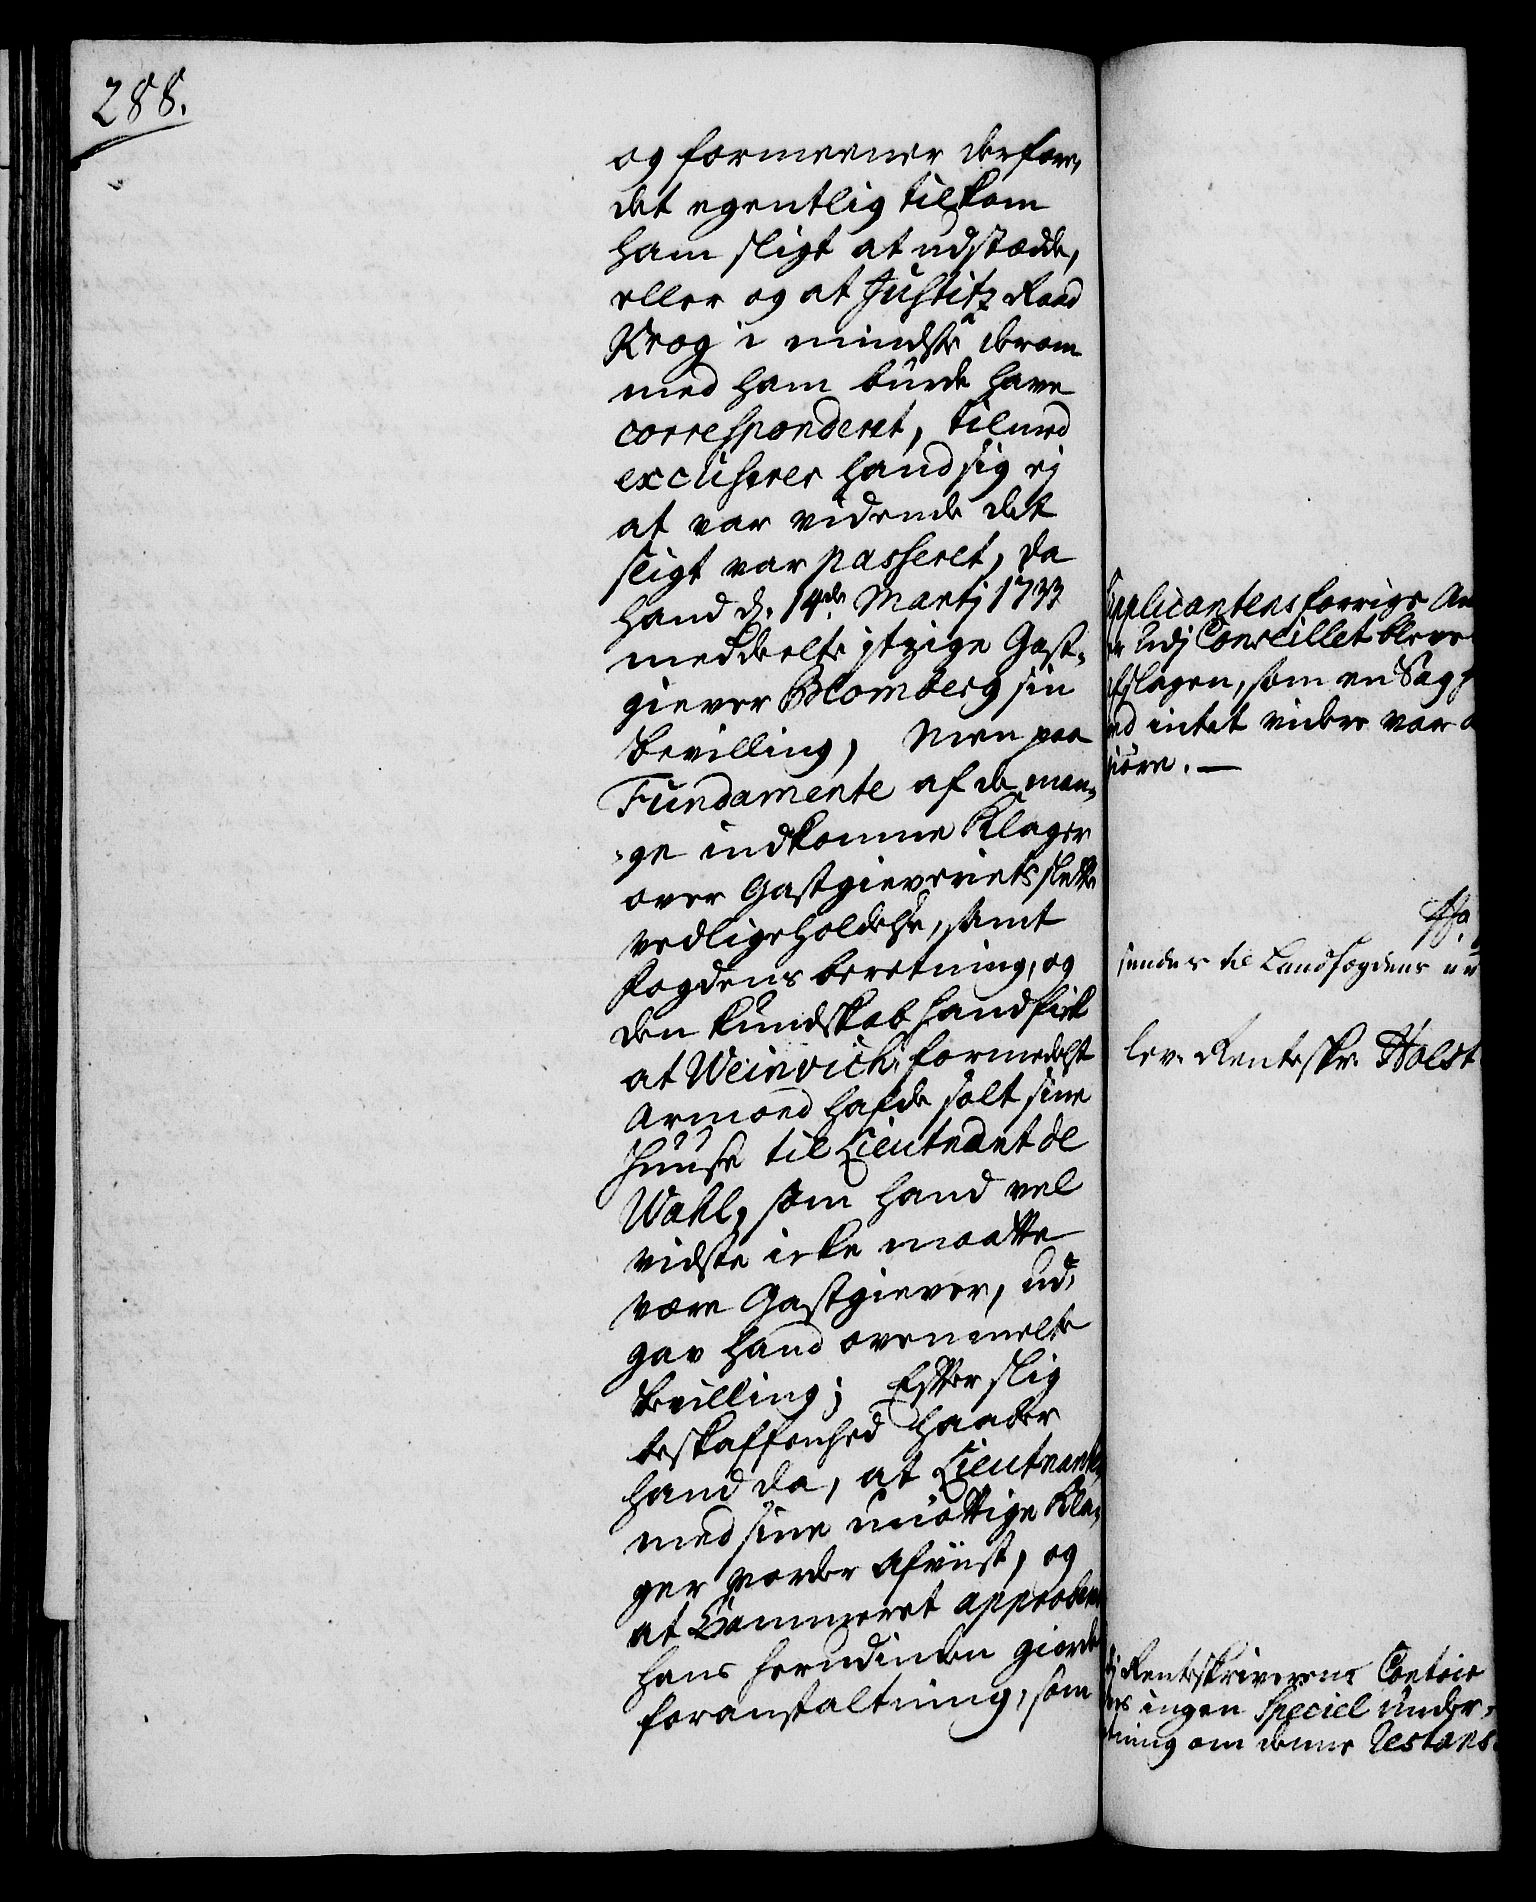 288.
og formeener derfore,
det egentlig tilkom
ham sligt at udstædde,
eller og at Justitz Raad
Krog i mindste derom
med ham burde have
correspenderet, tilmed
excuserer hand sig ej
at var vidende det
sligt var passeret, da
hand d. 14de Martj 1733
meddeelte itzige Gast-
giever Blomberg sin
bevilling, Men paa
Fundamente af de man-
-ge indkomne Klager
over Gastgieveriets slette
vedligeholdelse, samt
Fogdens beretning, og
den kundskab hand fick
at Weinvich, formedelst
Armoed hafde solt sine
Huuse til Lieutnant de
Wahl, som hand vel
vidste icke maatte
være Gastgiever, ud-
gav hand ovenmelte
bevilling; Efter slig
beskaffenhed haaber
hand da, at Lieutnanten
med sine unöttige Kla-
ger vorder afviist, og
at Cammeret approberer
hans herudinden giorde
foranstaltning, som
Supplicantens forrige An
udj Conseillet bleve
afslagen, som en Sag h
intet videre var
giöre. —
sendes til Landfogdens
lev. Renteskr. Holst
Renteskriverens Contoir
ingen Speciel under-
retning om denne Restans